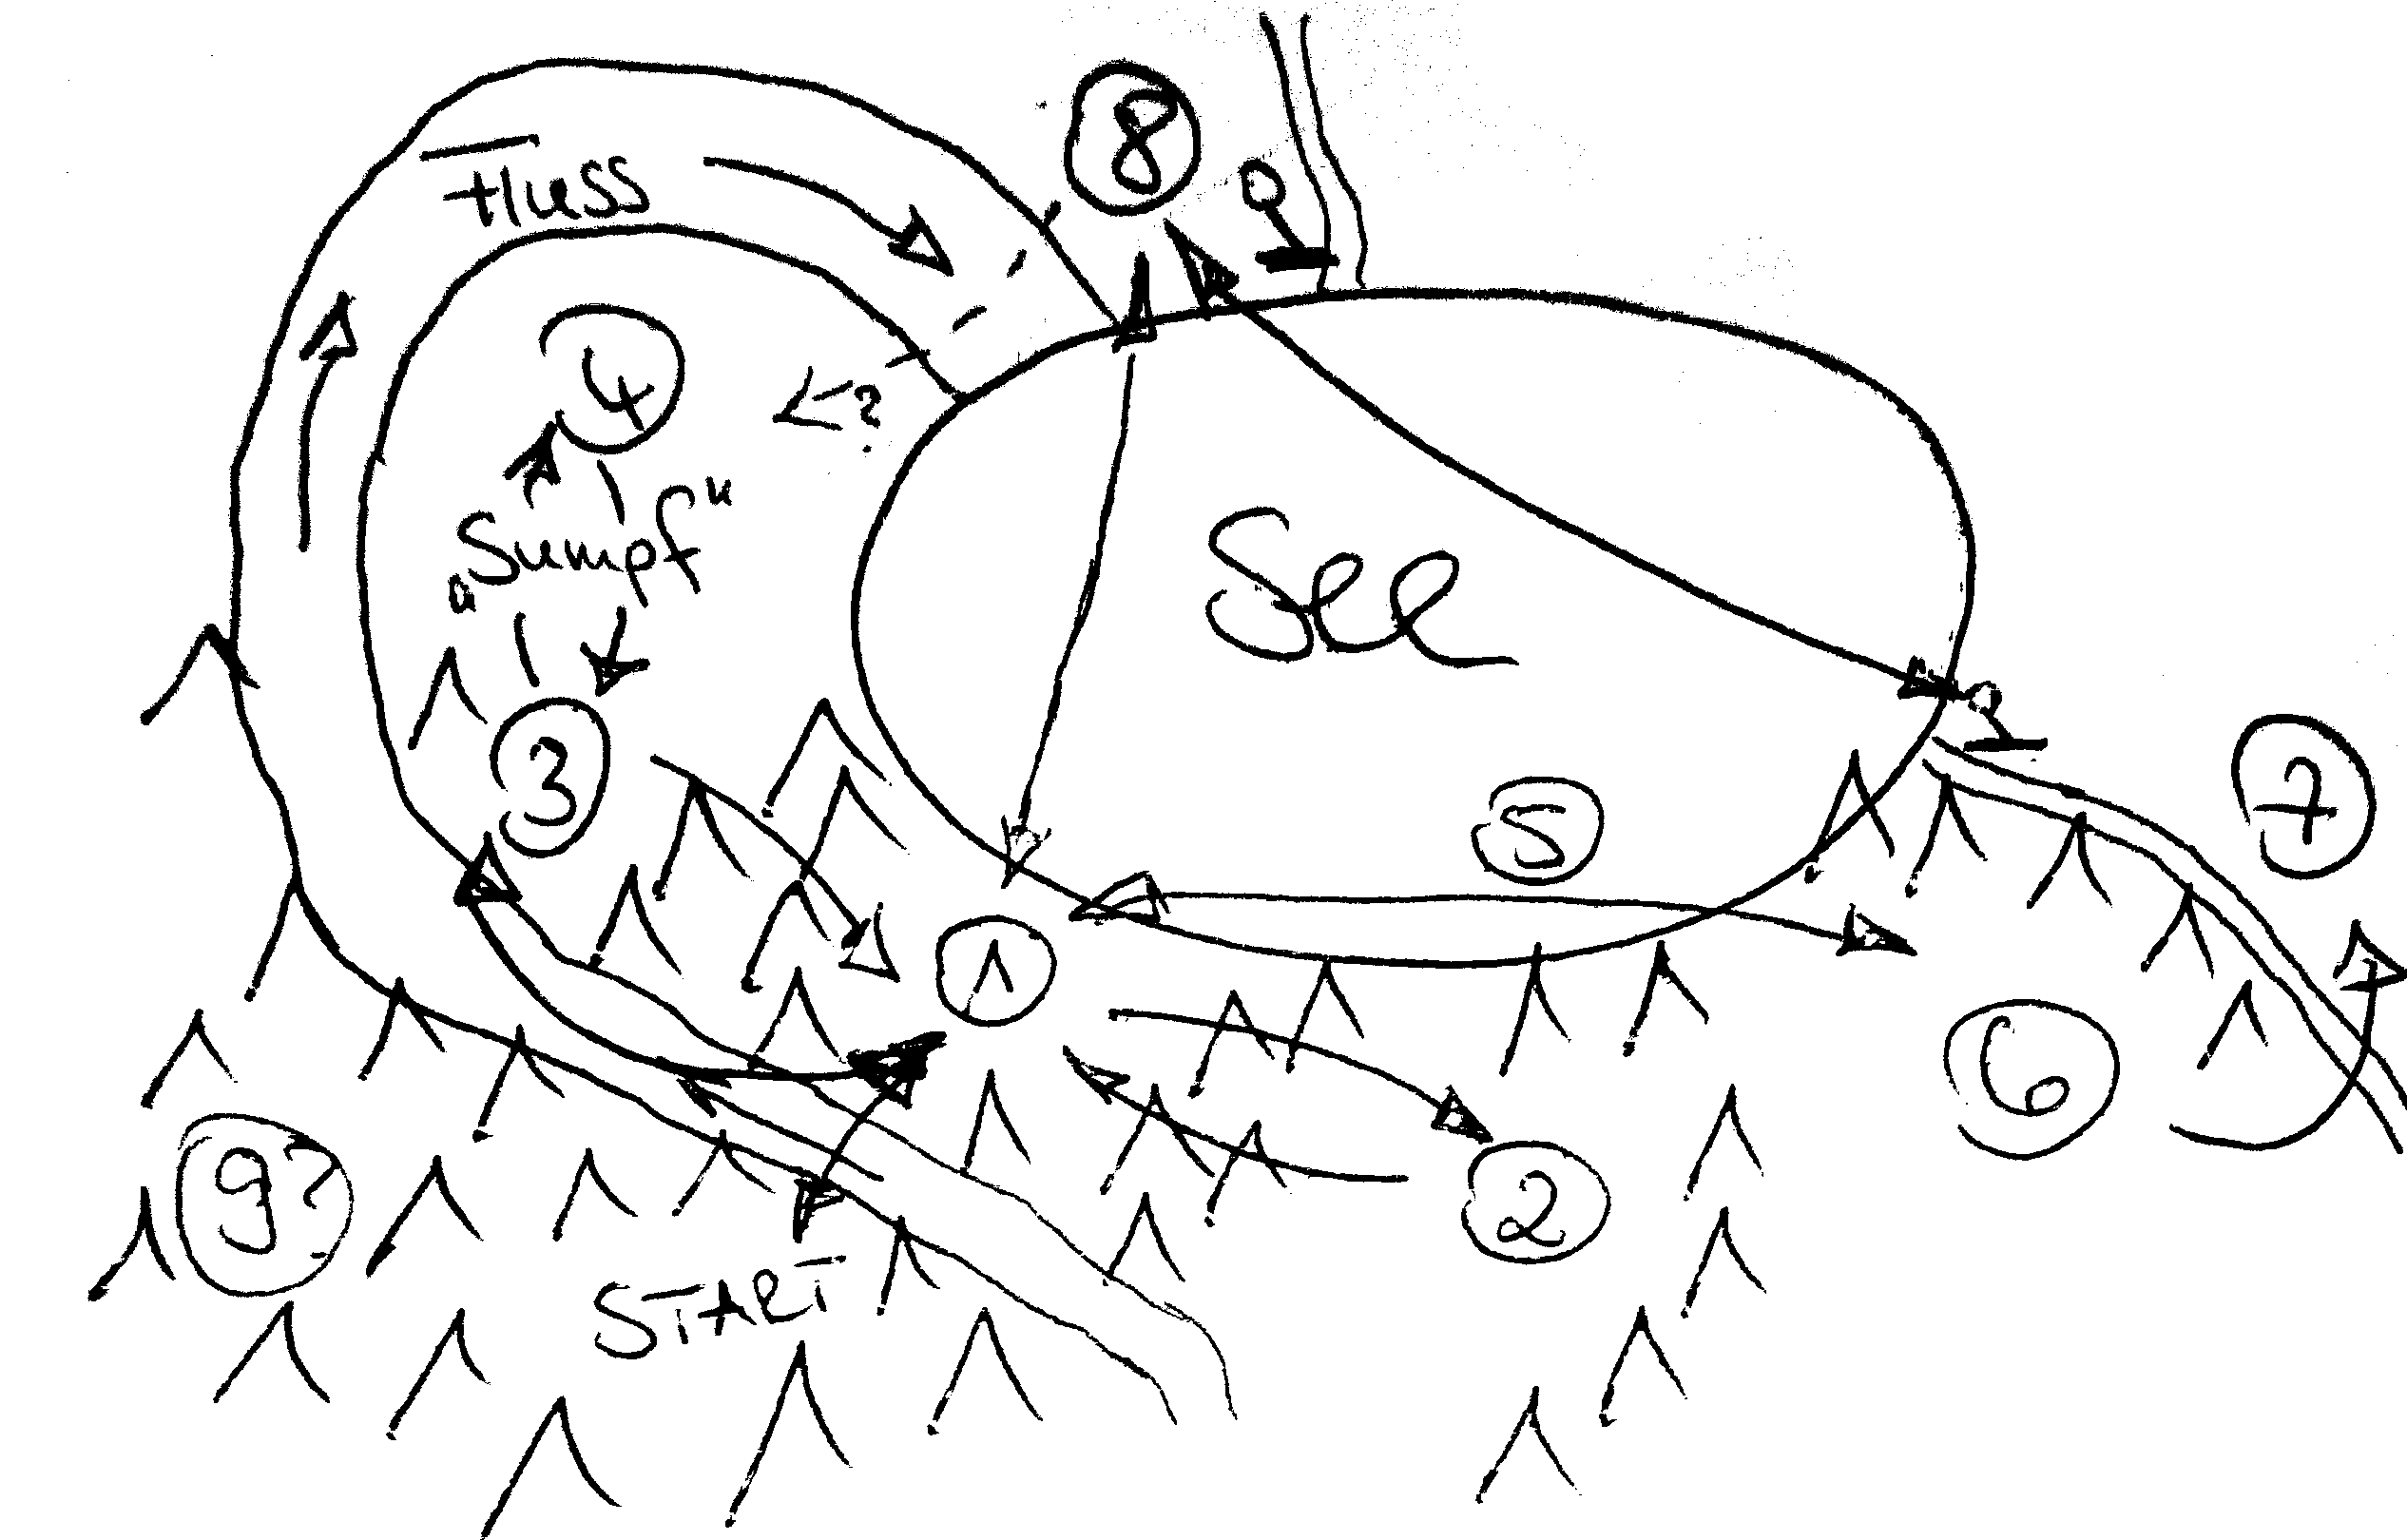 8
Fluss
4
<?
„Sumpf"
See
3
5
7
1
6
9?
2
START